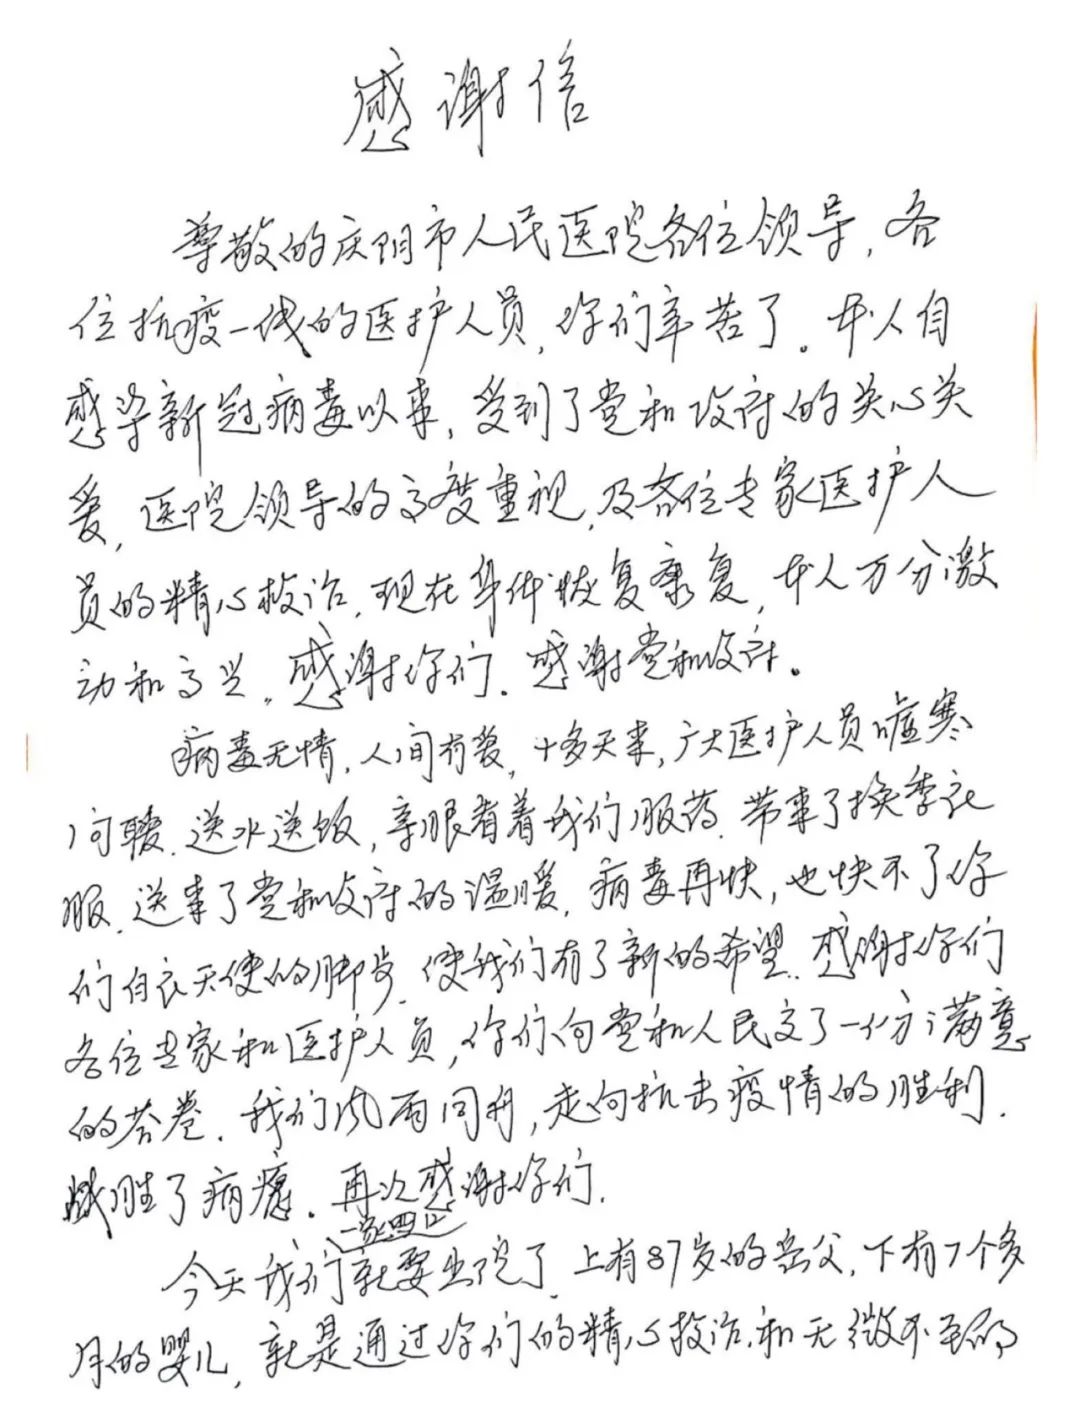 感谢信
尊敬的庆阳市人民医院各位领导，各
位抗疫一线的医护人员，你们辛苦了。本人自
感染新冠病毒以来，受到了党和政府的关心关
爱，医院领导的高度重视，及各位专家医护人
员的精心救治，现在身体恢复康复，本人万分激
动和高兴。感谢你们。感谢党和政府。
病毒无情，人间有爱，十多天来，广大医护人员嘘寒
问暖、送水送饭，亲眼看着我们服药、带来了换季衣
服、送来了党和政府的温暖，病毒再快，也快不了你
们白衣天使的脚步，使我们有了新的希望、感谢你们
各位专家和医护人员，你们向党和人民交了一份满意
的答卷．我们风雨同舟，走向抗击疫情的胜利．
战胜了病魔．再次感谢你们．
一家四口
今天我们就要出院了，上有87岁的岳父，下有7个多
月的婴儿，就是通过你们的精心救治和无微不至的